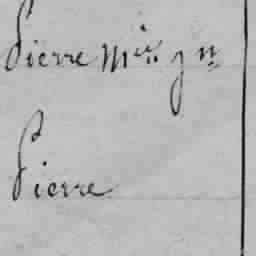 Pierre Mie jn
Pierre